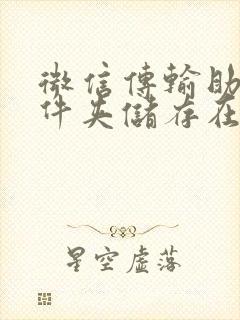 微信傳輸助
件夾儲存在
星空虛落